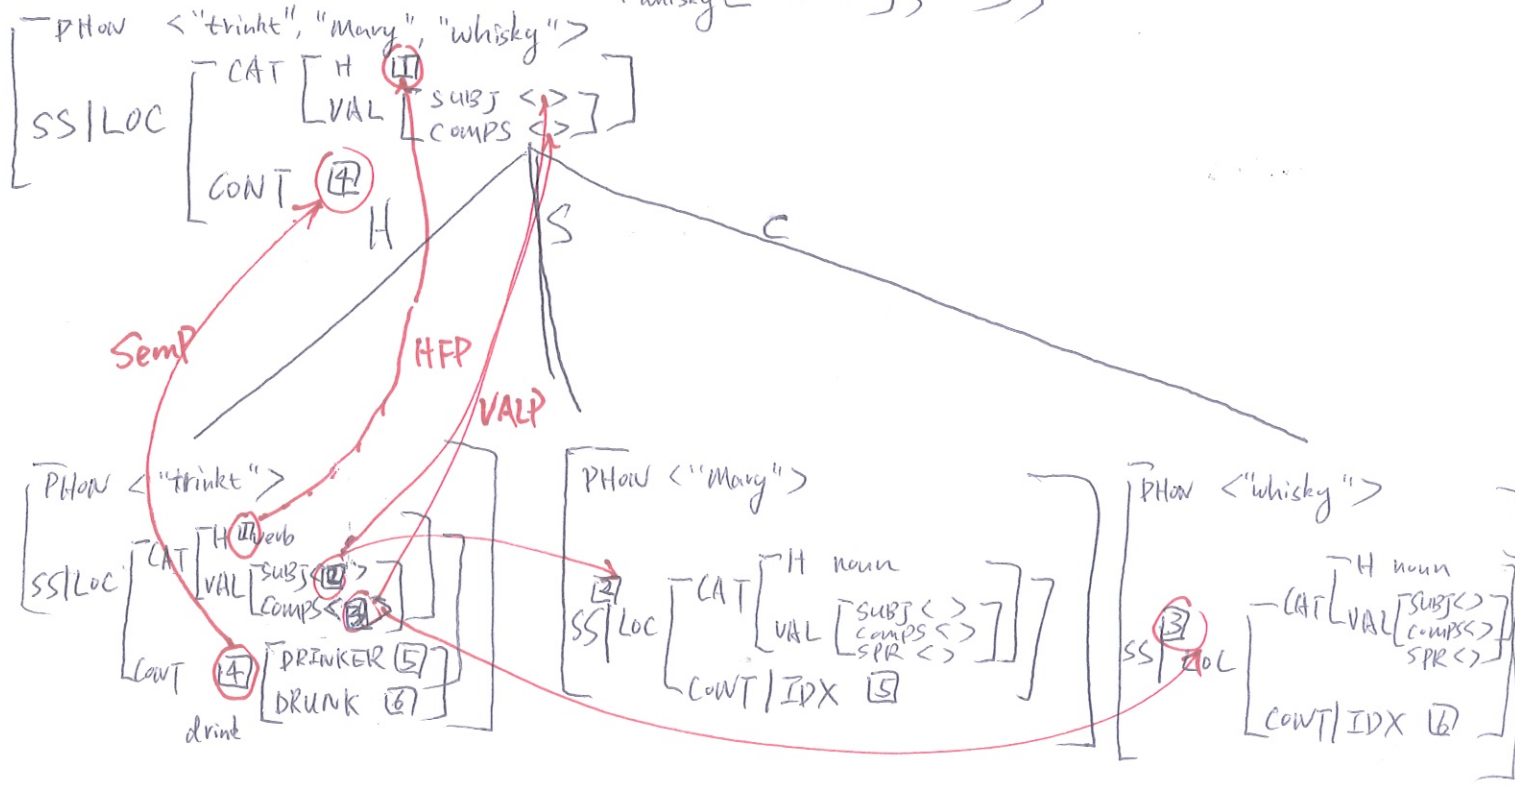 whisky[ ] ) > ) )
PHON <"trinkt", "Mary", "whisky">
SS|LOC
CAT
H [1]
VAL
SUBJ < >
COMPS < >
CONT [4]
H
S
C
SemP
HFP
VALP
PHON <"trinkt">
SS|LOC
CAT
H [1] verb
VAL
SUBJ <[2]>
COMPS <[3]>
CONT [4]
DRINKER [5]
DRUNK [6]
drink
PHON <"Mary">
[2]
SS|LOC
CAT
H noun
VAL
SUBJ < >
COMPS < >
SPR < >
CONT|IDX [5]
PHON <"whisky">
[3]
SS|LOC
CAT
H noun
VAL
SUBJ < >
COMPS < >
SPR < >
CONT|IDX [6]